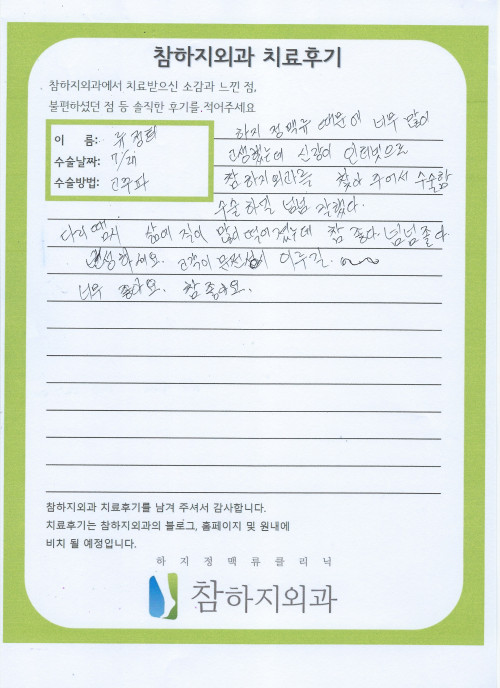 참하지외과 치료후기
참하지외과에서 치료받으신 소감과 느낀 점,
불편하셨던 점 등 솔직한 후기를 적어주세요
이 름: 유정
수술날짜: 7/28
수술방법: 고주파
하지 정맥류 때문에 너무 많이
고생했는데 신랑이 인터넷으로
참하지외과를 찾아 주어서 수술함
수술 하셀 넘넘 잘했다.
다리땜시 삶에 직이 많이 떡어졌는데 참 좋다. 넘넘좋다
번성하세요. 고객이 문전성시 이루길.
너무 좋아요. 참 좋아요.
참하지외과 치료후기를 남겨 주셔서 감사합니다.
치료후기는 참하지외과의 블로그, 홈페이지 및 원내에
비치 될 예정입니다.
하지정맥류클리닉
참하지외과